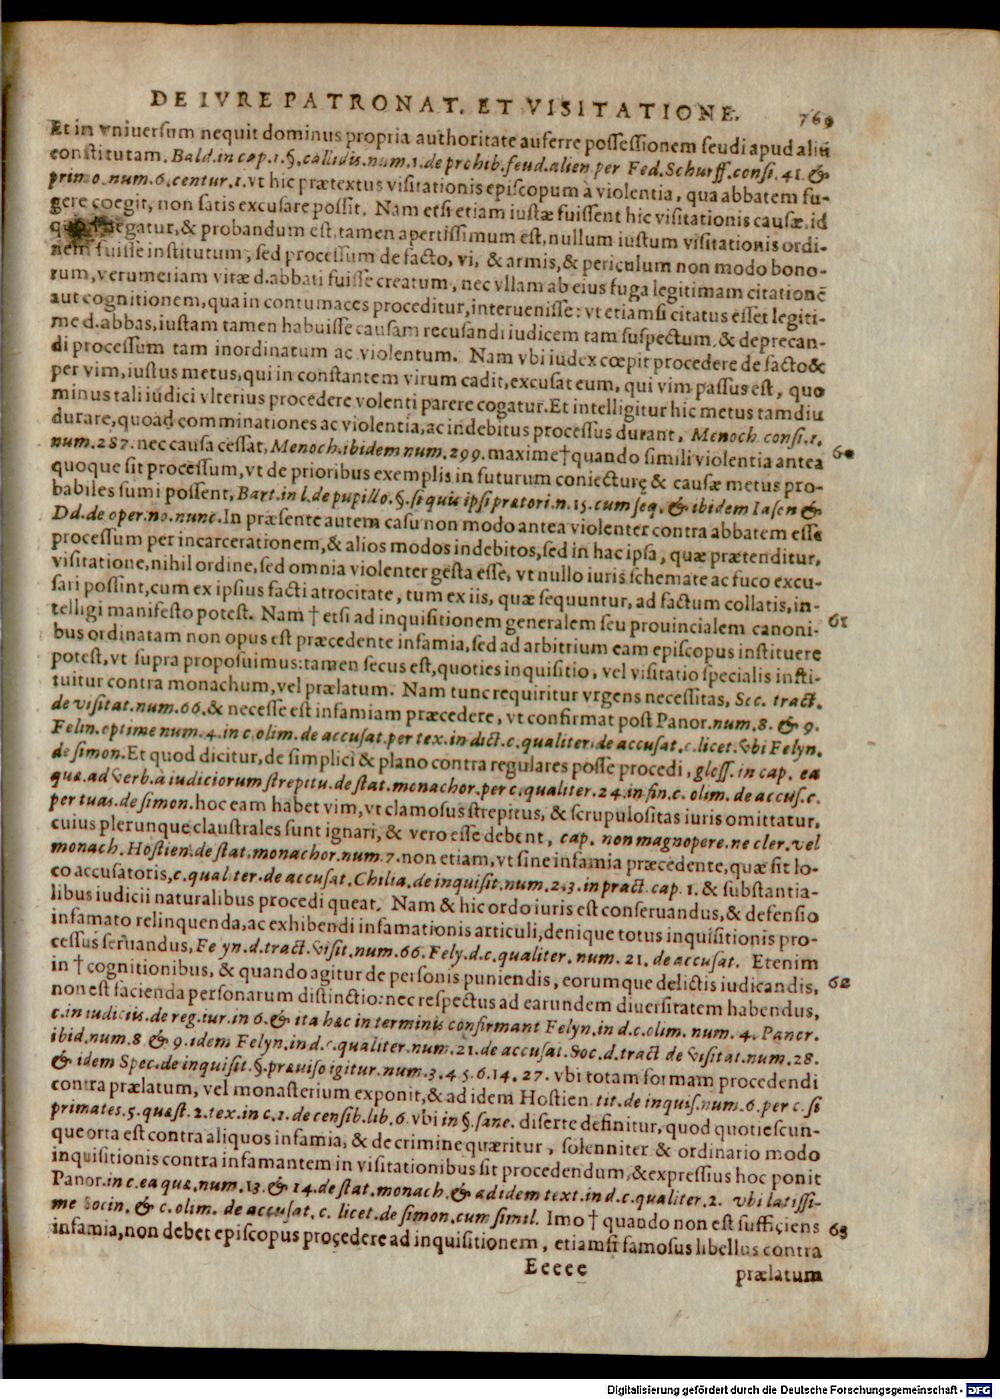 DE IVRE PATRONAT. ET VISITATIONE. 769
Et in vniuersum nequit dominus propria authoritate auferre possessionem feudi apud aliũ
constitutam. Bald. in cap. 1. §. callidis. num. 1. de prohib. feud. alien. per Fed. Schurff. consi. 41. &
primo. num. 6. centur. 1. vt hic prætextus visitationis episcopum à violentia, qua abbatem fu-
gere coegit, non satis excusare possit. Nam etsi etiam iustæ fuissent hic visitationis causæ, id
negatur, & probandum est, tamen apertissimum est, nullum iustum visitationis ordi-
nem fuisse institutum, sed processum de facto, vi, & armis, & periculum non modo bono-
rum, verumetiam vitæ d. abbati fuisse creatum, nec vllam ab eius fuga legitimam citationẽ
aut cognitionem, qua in contumaces proceditur, interuenisse: vt etiamsi citatus esset legiti-
me d. abbas, iustam tamen habuisse causam recusandi iudicem tam suspectum, & deprecan-
di processum tam inordinatum ac violentum. Nam vbi iudex cœpit procedere de facto &
per vim, iustus metus, qui in constantem virum cadit, excusat eum, qui vim passus est, quo
minus tali iudici vlterius procedere volenti parere cogatur. Et intelligitur hic metus tamdiu
durare, quoad comminationes ac violentia, ac indebitus processus durant. Menoch. consi. 1.
num. 287. nec causa cessat, Menoch. ibidem num. 299. maxime † quando simili violentia antea 60
quoque sit processum, vt de prioribus exemplis in futurum coniecturę & causæ metus pro-
babiles sumi possent, Bart. in l. de pupillo. §. si quis ipsi prætori. n. 15. cum seq. & ibidem Iasen &
Dd. de oper. no. nunc. In præsente autem casu non modo antea violenter contra abbatem esse
processum per incarcerationem, & alios modos indebitos, sed in hac ipsa, quæ prætenditur,
visitatione, nihil ordine, sed omnia violenter gesta esse, vt nullo iuris schemate ac fuco excu-
sari possint, cum ex ipsius facti atrocitate, tum ex iis, quæ sequuntur, ad factum collatis, in-
telligi manifesto potest. Nam † etsi ad inquisitionem generalem seu prouincialem canoni- 61
bus ordinatam non opus est præcedente infamia, sed ad arbitrium eam episcopus instituere
potest, vt supra proposuimus: tamen secus est, quoties inquisitio, vel visitatio specialis insti-
tuitur contra monachum, vel prælatum. Nam tunc requiritur vrgens necessitas, Soc. tract.
de visitat. num. 66. & necesse est infamiam præcedere, vt confirmat post Panor. num. 8. & 9.
Felin. optime num. 4. in c. olim. de accusat. per tex. in dict. c. qualiter. de accusat. c. licet. vbi Felyn.
de simon. Et quod dicitur, de simplici & plano contra regulares posse procedi, gloss. in cap. ea
quæ. ad verb. à iudiciorum strepitu. de stat. monachor. per c. qualiter. 24. in fin. c. olim. de accus. c.
per tuas. de simon. hoc eam habet vim, vt clamosus strepitus, & scrupulositas iuris omittatur,
cuius plerunque claustrales sunt ignari, & vero esse debent, cap. non magnopere. ne cler. vel
monach. Hostien. de stat. monachor. num. 7. non etiam, vt sine infamia præcedente, quæ sit lo-
co accusatoris, c. qualiter. de accusat. Chilia. de inquisit. num. 23. in pract. cap. 1. & substantia-
libus iudicii naturalibus procedi queat. Nam & hic ordo iuris est conseruandus, & defensio
infamato relinquenda, ac exhibendi infamationis articuli, denique totus inquisitionis pro-
cessus seruandus, Fe yn. d. tract. visit. num. 66. Fely. d. c. qualiter. num. 21. de accusat. Etenim
in † cognitionibus, & quando agitur de personis puniendis, eorumque delictis iudicandis, 62
non est facienda personarum distinctio: nec respectus ad earundem diuersitatem habendus,
c. in iudiciis. de reg. iur. in 6. & ita hæc in terminis confirmant Felyn. in d. c. olim. num. 4. Panor.
ibid. num. 8 & 9. idem Felyn. in d. c. qualiter. num. 21. de accusat. Soc. d. tract de visitat. num. 28.
& idem Spec. de inquisit. §. præuiso igitur. num. 3. 4. 5. 6. 14. 27. vbi totam formam procedendi
contra prælatum, vel monasterium exponit, & ad idem Hostien. tit. de inquis. num. 6. per c. si
primates. 5. quæst. 2. tex. in c. 1. de censib. lib. 6. vbi in §. sane. diserte definitur, quod quotiescun-
que orta est contra aliquos infamia, & de crimine quæritur, solenniter & ordinario modo
inquisitionis contra infamantem in visitationibus sit procedendum, & expressius hoc ponit
Panor. in c. ea quæ. num. 13. & 14. de stat. monach. & ad idem text. in d. c. qualiter. 2. vbi latissi-
me Socin. & c. olim. de accusat. c. licet. de simon. cum simil. Imo † quando non est sufficiens 63
infamia, non debet episcopus procedere ad inquisitionem, etiamsi famosus libellus contra
Eeeee prælatum
Digitalisierung gefördert durch die Deutsche Forschungsgemeinschaft - DFG